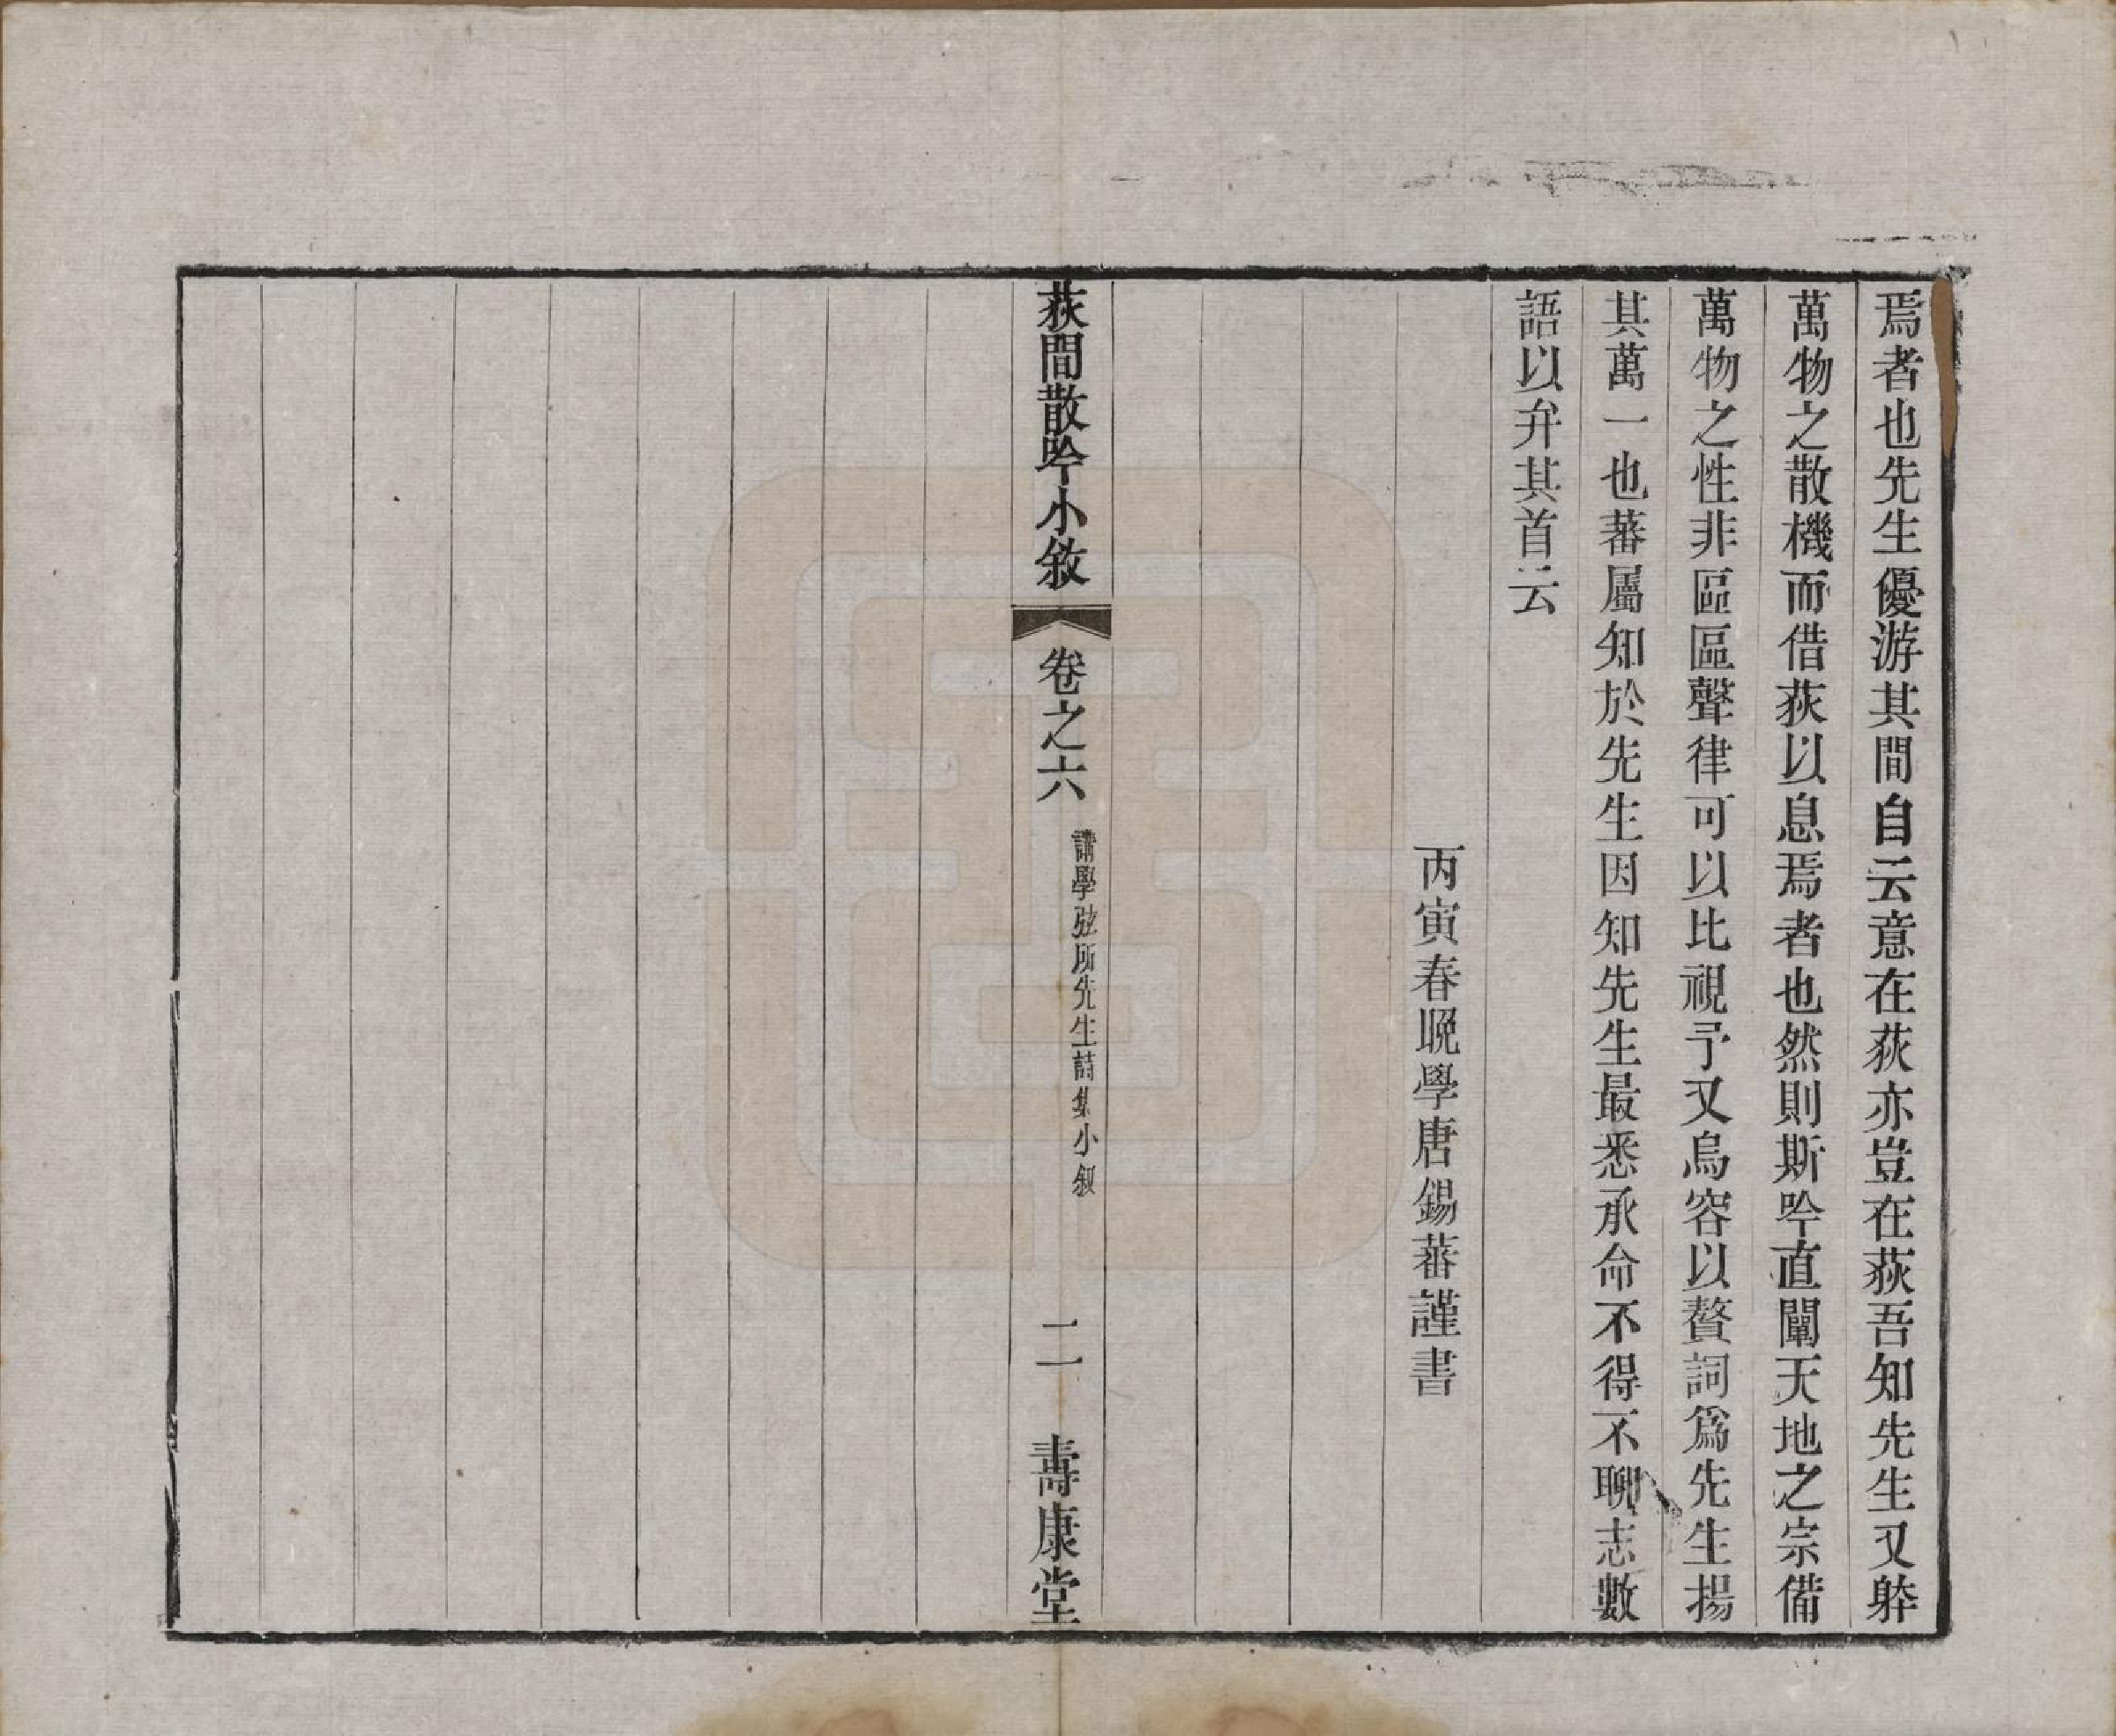 焉者也先生優游其間自云意在荻亦豈在荻吾知先生又躰
萬物之散機而借荻以息焉者也然則斯吟直闡天地之宗備
萬物之性非區區聲律可以比視予又烏容以贅詞爲先生揚
其萬一也蕃屬知於先生因知先生最悉承命不得不聊志數
語以弁其首云
丙寅春晚學唐錫蕃謹書
荻間散吟小敘
卷之六
講學弦所先生詩集小敘
二
壽康堂